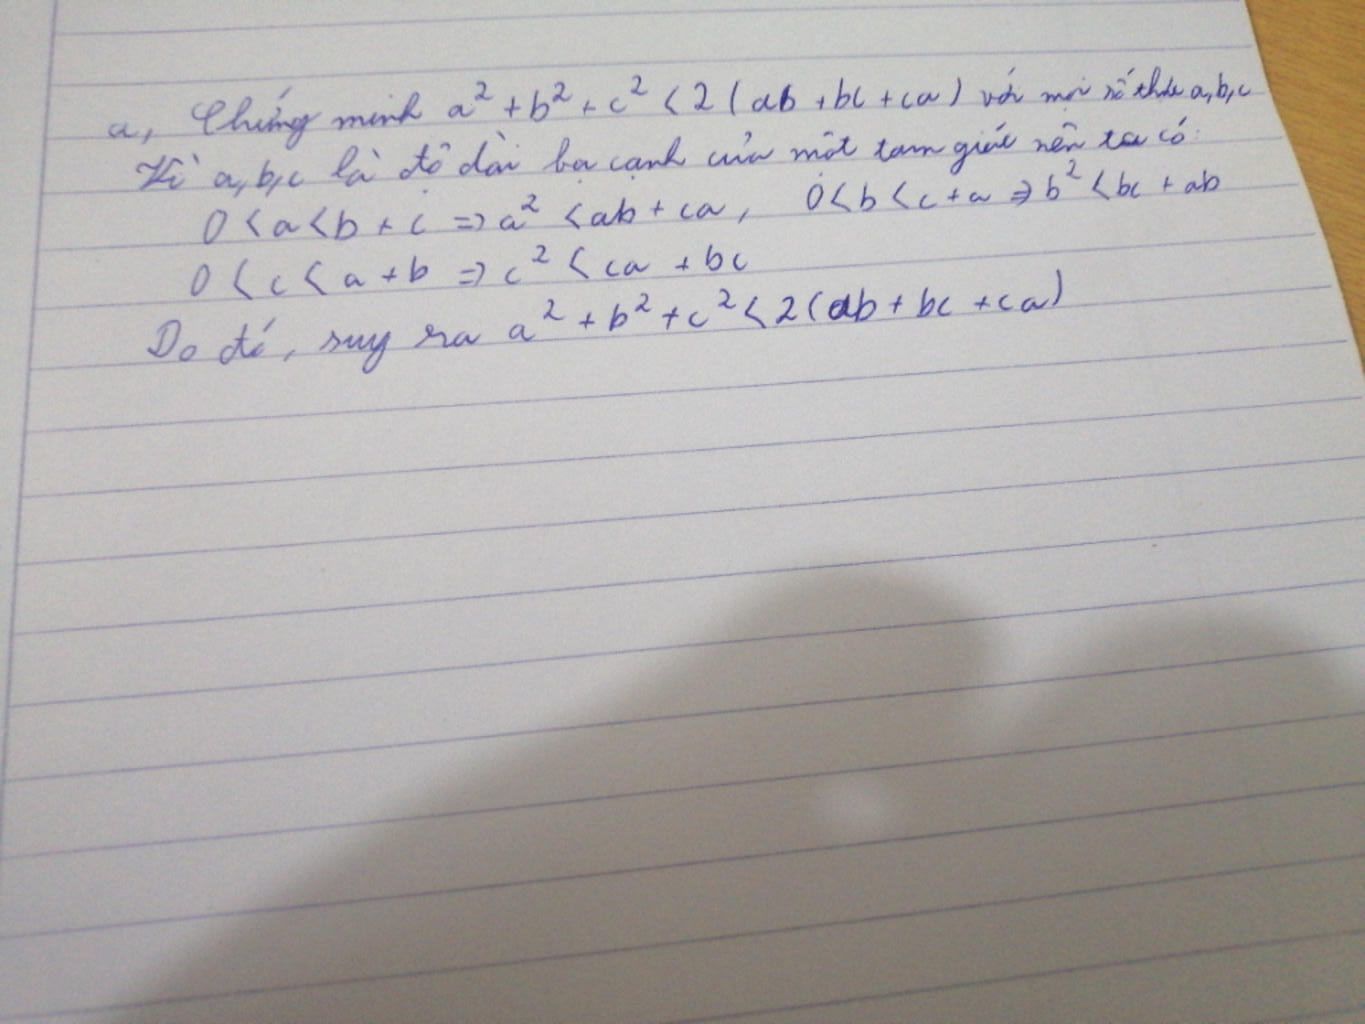 a, Chứng minh a² + b² + c² < 2 (ab + bc + ca) với mọi số thực a, b, c
Vì a, b, c là độ dài ba cạnh của một tam giác nên ta có:
0 < a < b + c => a² < ab + ca, 0 < b < c + a => b² < bc + ab
0 < c < a + b => c² < ca + bc
Do đó, suy ra a² + b² + c² < 2 (ab + bc + ca)